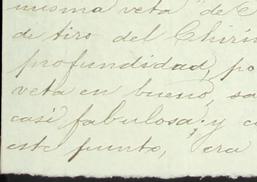 misma veta de C
de tiro del Chirin
profundidad, po
veta en bueno, sa
casi fabulosa y c
este punto, era